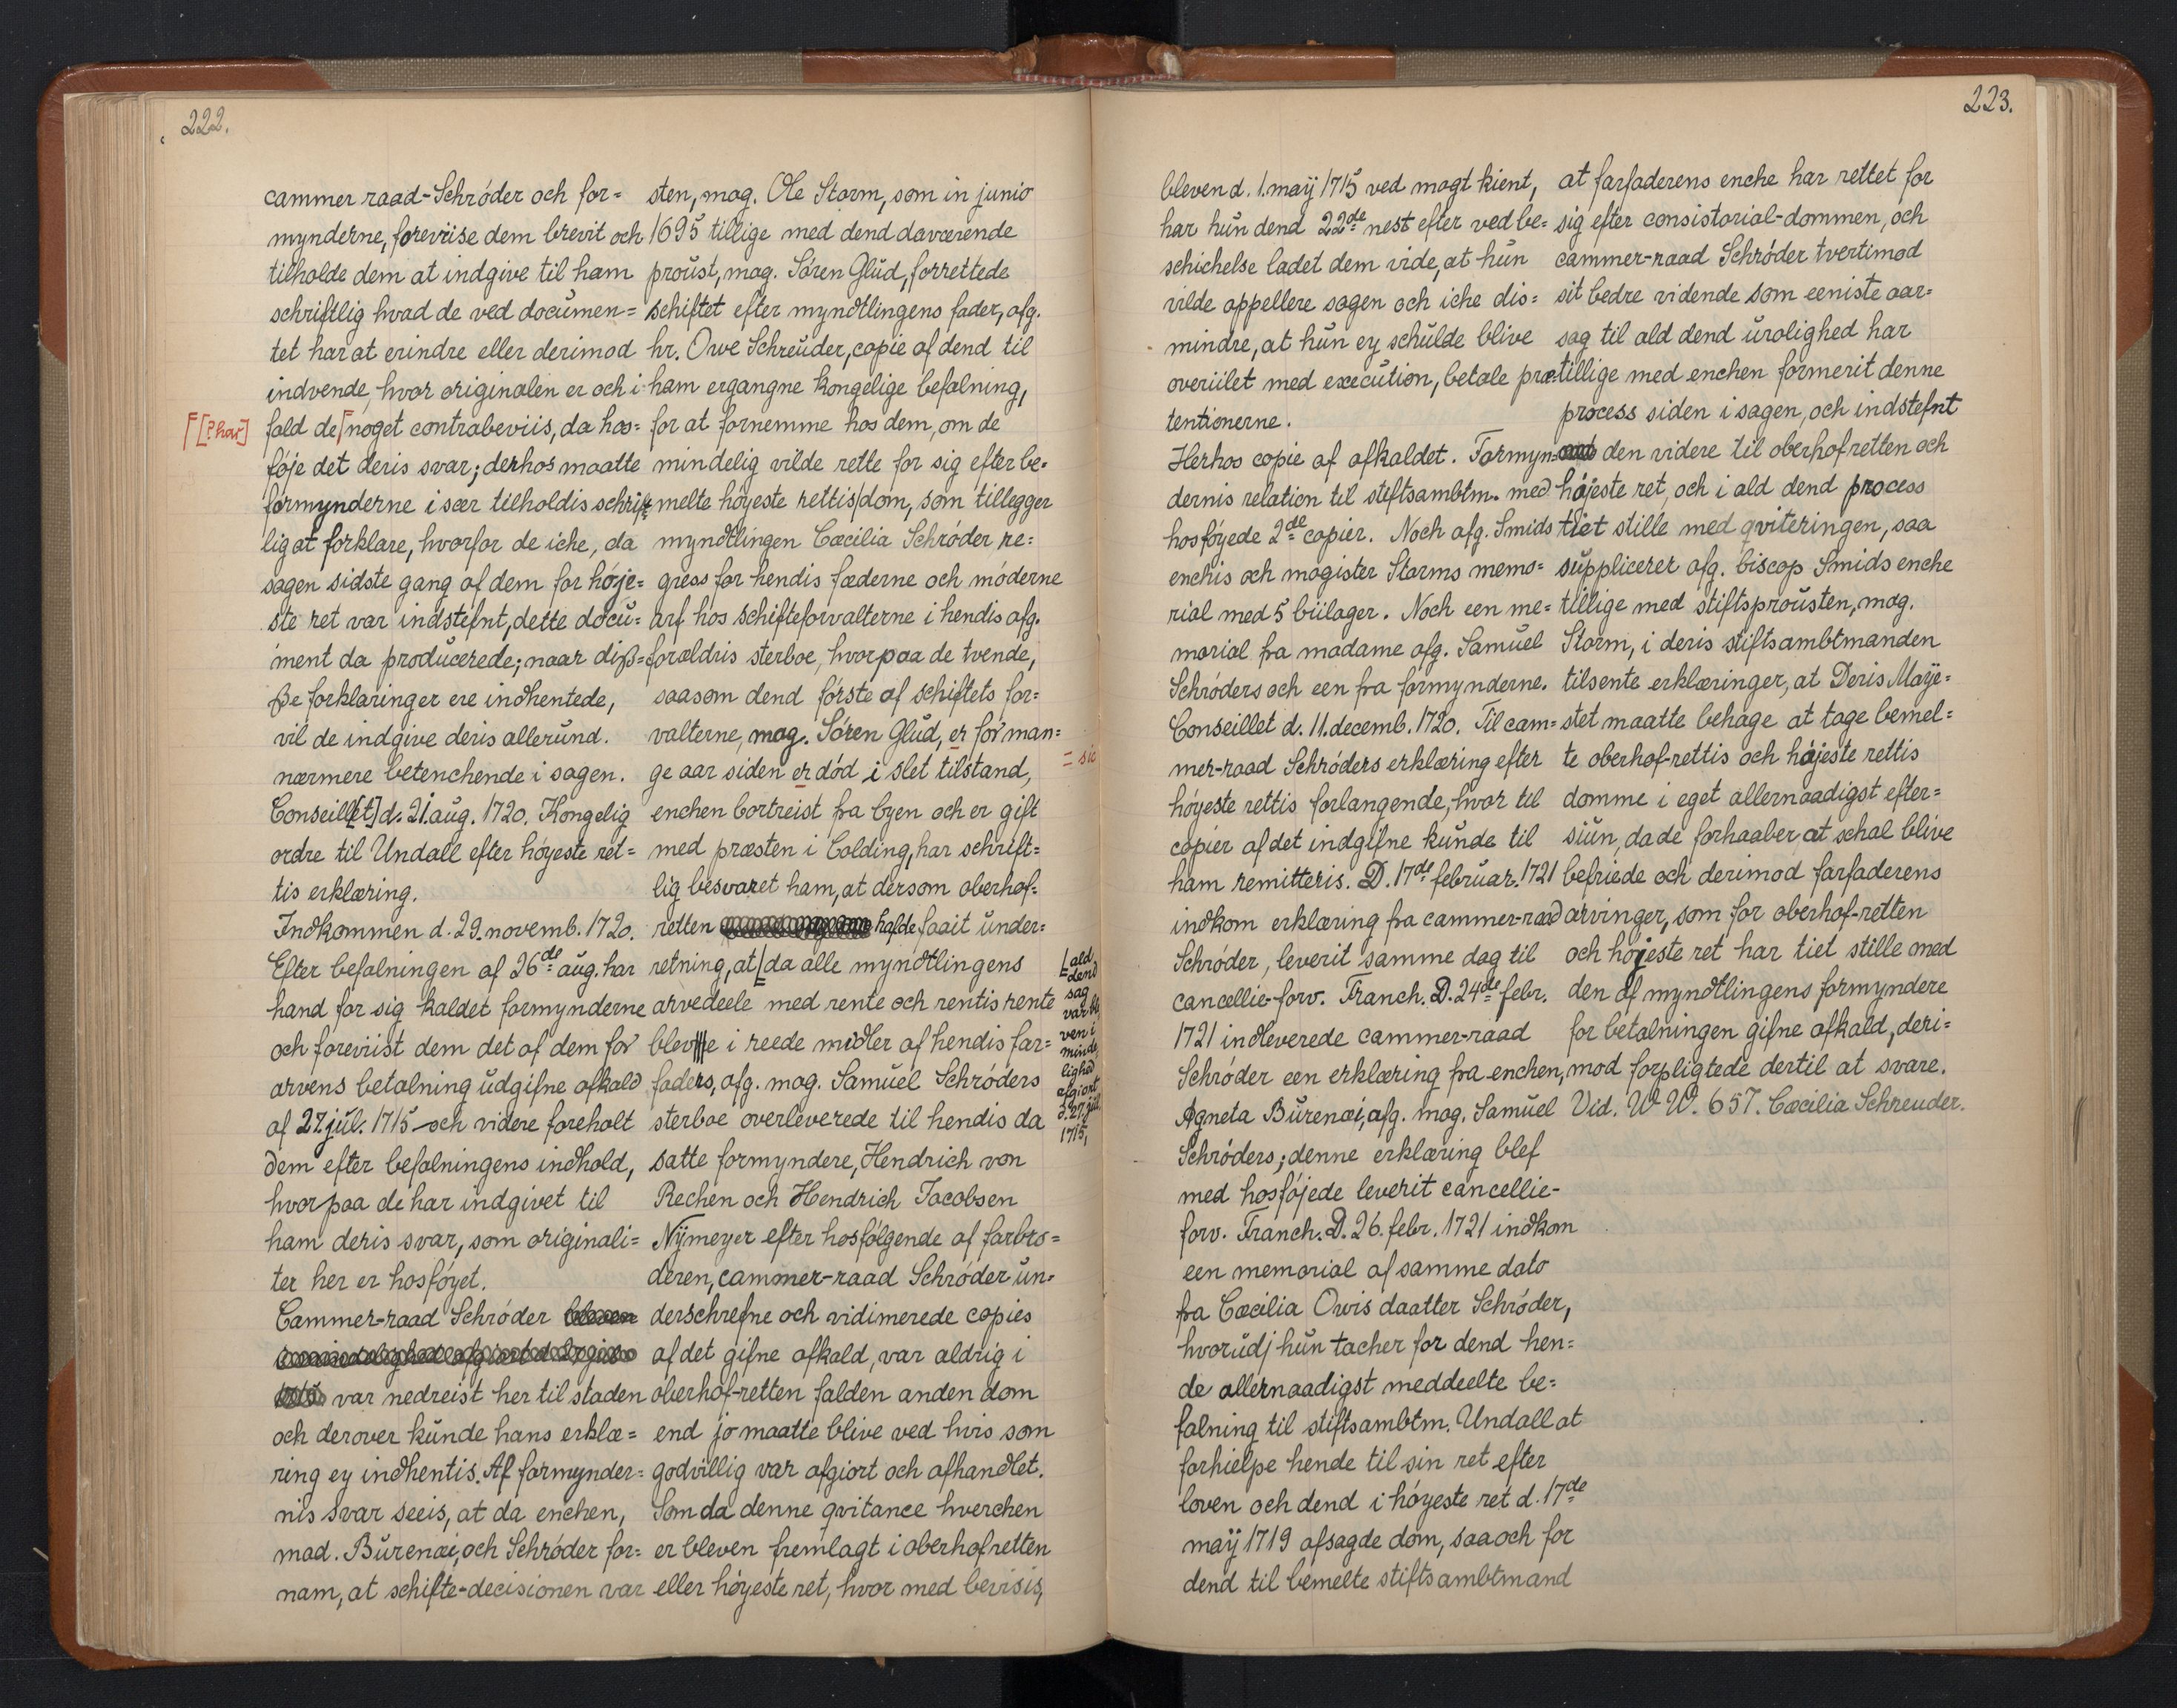 222.
cammer raad-Schróder och for=
mynderne, forevriise dem brevit och
tilholde dem at indgive til ham
schriftlig hvad de ved documen=
tet har at erindre eller derimod
indvende, hvor originalen er och i
fald de ⌈noget contrabeviis, da hos=
⌈[?har]
föje det deris svar; derhos maatte
formynderne i sær tilholdis schrift=
lig at forklare, hvorfor de iche, da
sagen sidste gang af dem for höje=
ste ret var indstefnt, dette docu=
ment da producerede; naar diß=
ße forklaringer ere indhentede,
vil de indgive deris allerund.
nærmere betenchende i sagen.
Conseill[et] d. 21. aug. 1720. Kongelig
ordre til Undall efter höyeste ret=
tis erklæring.
Indkommen d. 29. novemb. 1720.
Efter befalningen af 26de aug. har
hand for sig kaldet formynderne
och foreviist dem det af dem for
arvens betalning udgifne afkald
af 27. jul. 1715 och videre foreholt
dem efter befalningens indhold,
hvorpaa de har indgivet til
ham deris svar, som originali=
ter her er hosföyet.
Cammer-raad Schröder
var nedreist her til staden
och derover kunde hans erklæ=
ring ey indhentis. Af formynder=
nis svar seeis, at da enchen,
mad. Burenæi, och Schröder for=
nam, at schifte-decisionen var
sten, mag. Ole Storm, som in junio
1695 tillige med dend daværende
proust, mag. Sören Glud, forrettede
schiftet efter myndtlingens fader, afg.
hr. Owe Schreuder, copie af dend til
ham ergangne kongelige befalning,
for at fornemme hos dem, om de
mindelig vilde rette for sig efter be=
melte höyeste rettis dom, som tillegger
myndtlingen Cæcilia Schröder re=
gress for hendis fæderne och möderne
arf hos schifteforvalterne i hendis afg.
forældris sterboe, hvorpaa de tvende,
saasom dend förste af schiftets for=
valterne, mag. Sören Glud, er for man=
ge aar siden er död i slet tilstand,
= sic
enchen bortreist fra byen och er gift
med præsten i Colding, har schrift=
lig besvaret ham, at dersom oberhof=
retten hafde faait under=
retning, at ⌊da alle myndtlingens
⌊ald
dend
sag
var ble
ven i
minde
lighed
afgiort
d. 27. jul.
1715,
arvedeele med rente och rentis rente
bleve i reede midler af hendis far=
faders, afg. mag. Samuel Schröders
sterboe overleverede til hendis da
satte formyndere, Hendrich von
Rechen och Hendrich Jacobsen
Nÿmeyer efter hosfölgende af farbro=
deren, cammer-raad Schröder un=
derschrefne och vidimerede copies
af det gifne afkald, var aldrig i
oberhof-retten falden anden dom
end jo maatte blive ved hvis som
godvillig var afgiort och afhandlet.
Som da denne qvitance hverchen
er bleven fremlagt i oberhofretten
eller höyeste ret, hvor med bevisis,
223.
bleven d. 1. maÿ 1715 ved magt kient,
har hun dend 22de nest efter ved be=
schichelse ladet dem vide, at hun
vilde appellere sagen och iche dis=
mindre, at hun ey schulde blive
overiilet med execution, betale præ=
tentionerne.
Herhos copie af afkaldet. Formyn=
dernis relation til steftsambtm. med
hosföyede 2de copier. Noch afg. Smids
enchis och magister Storms memo=
rial med 5 biilager. Noch een me=
morial fra madame afg. Samuel
Schröders och een fra formynderne.
Conseillet d. 11. decemb. 1720. Til cam=
mer-raad Schröders erklæring efter
höyeste rettis forlangende, hvor til
copier af det indgifne kunde til
ham remitteris. D. 17de februar. 1721
indkom erklæring fra cammer-raad
Schröder, leverit samme dag til
cancellie-forv. Franch. D. 24de febr.
1721 indleverede cammer-raad
Schröder een erklæring fra enchen,
Agneta Burenæi, afg. mag. Samuel
Schröders; denne erklæring blef
med hosföjede leverit cancellie-
forv. Franch. D. 26. febr. 1721 indkom
een memorial af samme dato
fra Cæcilia Owis daatter Schröder,
hvorudj hun tacher for dend hen=
de allernaadigst meddeelte be=
falning til stiftsambtm. Undall at
forhielpe hende til sin ret efter
loven och dend i höyeste ret d. 17de
maÿ 1719 afsagde dom, saa och for
dend til bemelte stiftsambtmand
at farfaderens enche har rettet for
sig efter consistorial-dommen, och
cammer-raad Schröder tvertimod
sit bedre vidende som eeniste aar=
sag til ald dend urolighed har
tillige med enchen formerit denne
process siden i sagen, och indstefnt
den videre til oberhofretten och
höjeste ret, och i ald dend process
tiet stille med qviteringen, saa
supplicerer afg. biscop Smids enche
tillige med stiftsprousten, mag.
Storm, i deris stiftsambtmanden
tilsente erklæringer, at Deris Maÿe=
stet maatte behage at tage bemel=
te oberhof-rettis och höjeste rettis
domme i eget allernaadigst efter=
siun, da de forhaaber at schal blive
befriede och derimod farfaderens
arvinger, som for oberhof-retten
och höjeste ret har tiet stille med
den af myndtlingens formyndere
for betalningen gifne afkald, deri=
mod forpligtede dertil at svare.
Vid. W W. 657. Cæcilia Schreuder.